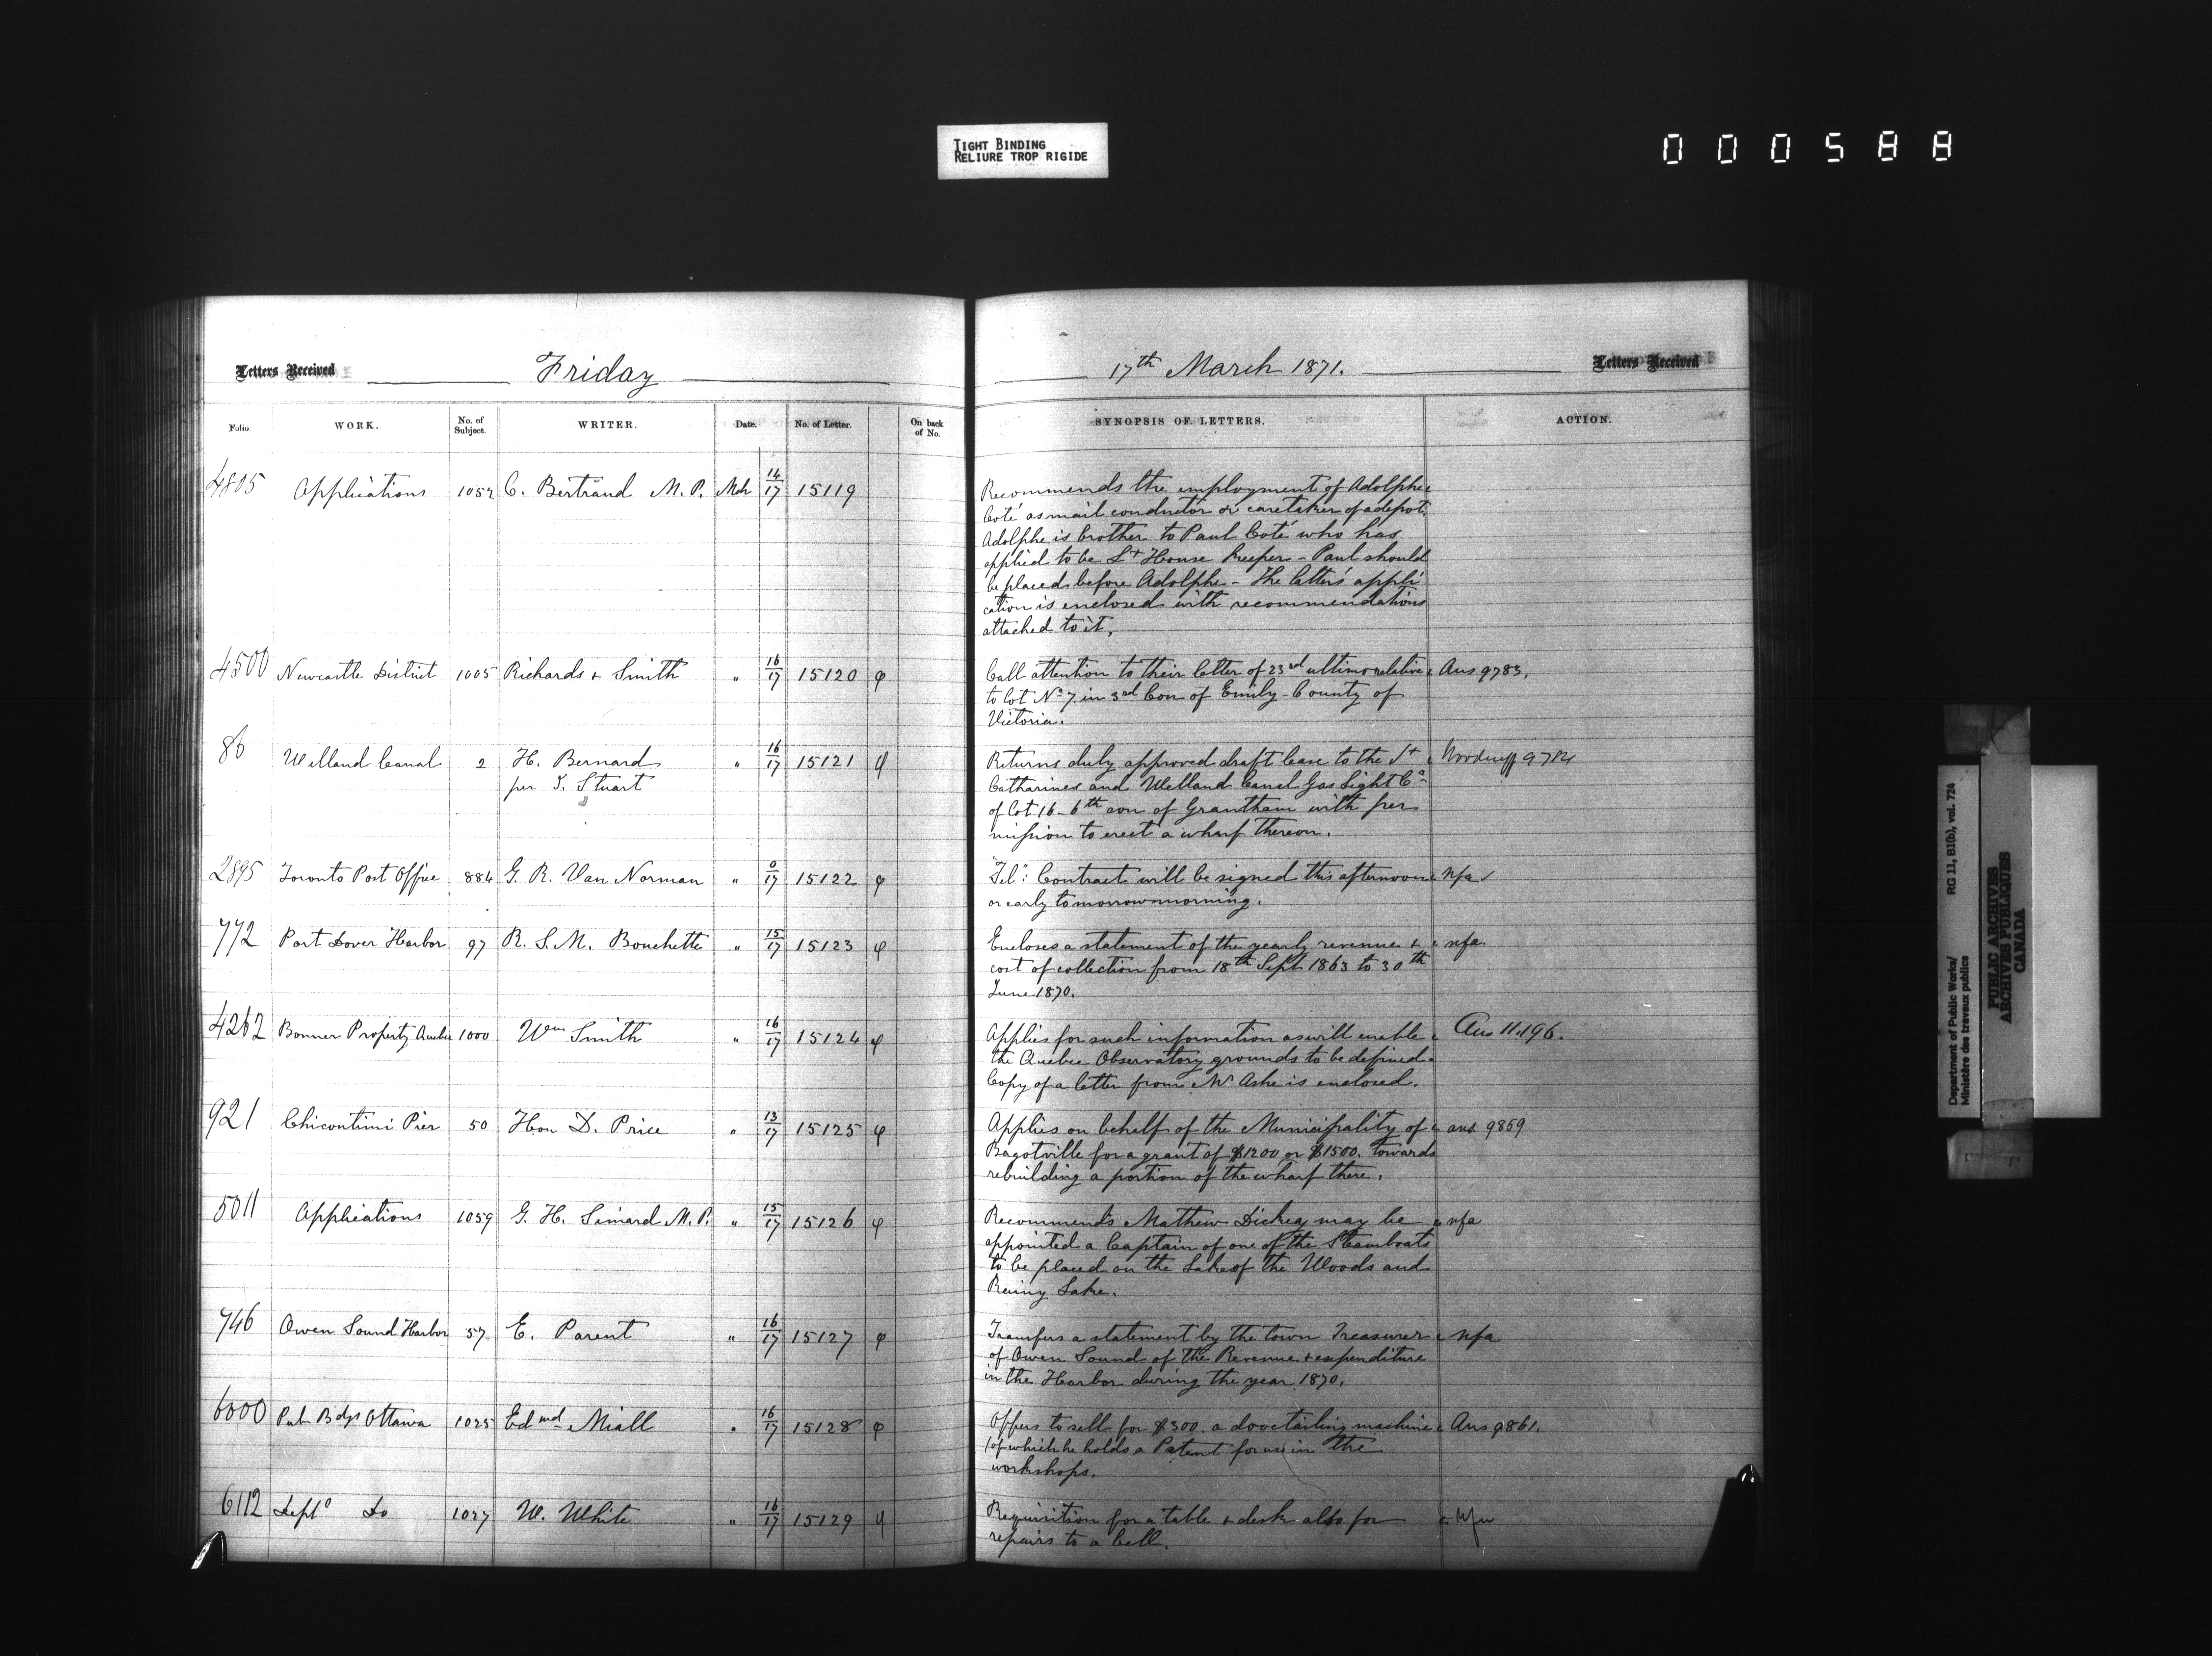 TIGHT BINDING
RELIURE TROP RIGIDE
000588
Letters Received Friday
Folio. WORK. No. of Subject. WRITER. Date. No. of Letter. On back of No.
4805 Applications 1057 C. Bertrand M.P. Mch 14/17 15119
4500 Newcastle District 1005 Richards & Smith " 16/17 15120 φ
86 Welland Canal 2 H. Bernard " 16/17 15121
per T. Stuart
2895 Toronto Post Office 884 G. R. Van Norman " 0/17 15122 φ
772 Port Dover Harbor 97 R. S. M. Bouchette " 15/17 15123 φ
4262 Bonner Property Quebec 1000 Wm Smith " 16/17 15124 φ
921 Chicoutimi Pier 50 Hon D. Price " 13/17 15125 φ
5011 Applications 1059 G. H. Simard M.P. " 15/17 15126 φ
746 Owen Sound Harbor 57 E. Parent " 16/17 15127 φ
6000 Pub Bdgs Ottawa 1025 Edmd Miall " 16/17 15128 φ
6112 Deptl Do 1027 W. White " 16/17 15129
17th March 1871. Letters Received
SYNOPSIS OF LETTERS. ACTION.
Recommends the employment of Adolphe
Coté as mail conductor or caretaker of a depot.
Adolphe is brother to Paul Coté who has
applied to be Lt House Keeper - Paul should
be placed before Adolphe - The latter's appli
cation is enclosed with recommendations
attached to it.
Call attention to their letter of 23rd ultimo relative Ans 9783.
to lot No 7 in 3rd Con of Emily - County of
Victoria.
Returns duly approved draft lease to the St Woodruff 9784
Catharines and Welland Canal Gas Light Co
of Lot 16 - 6th con of Grantham with per
mission to erect a wharf thereon.
"Tel": Contract will be signed this afternoon nfa
or early tomorrow morning.
Encloses a statement of the yearly revenue + nfa.
cost of collection from 18th Sept 1863 to 30th
June 1870.
Applies for such information as will enable Ans 11.196.
the Quebec Observatory grounds to be defined.
Copy of a letter from Mr Ashe is enclosed.
Applies on behalf of the Municipality of ans. 9859
Bagotville for a grant of $1200 or $1500. towards
rebuilding a portion of the wharf there.
Recommends Mathew Dickey may be nfa
appointed a Captain of one of the Steamboats
to be placed on the Lake of the Woods and
Rainy Lake.
Transfers a statement by the town Treasurer nfa
of Owen Sound of the Revenue + expenditure
in the Harbor during the year 1870.
Offers to sell for $300. a dovetailing machine Ans 9861.
(of which he holds a Patent for use in the
workshops.
Requisition for a table + desk also for
repairs to a bell.
Department of Public Works/ RG 11, B1(b), vol. 724
Ministère des travaux publics
PUBLIC ARCHIVES
ARCHIVES PUBLIQUES
CANADA